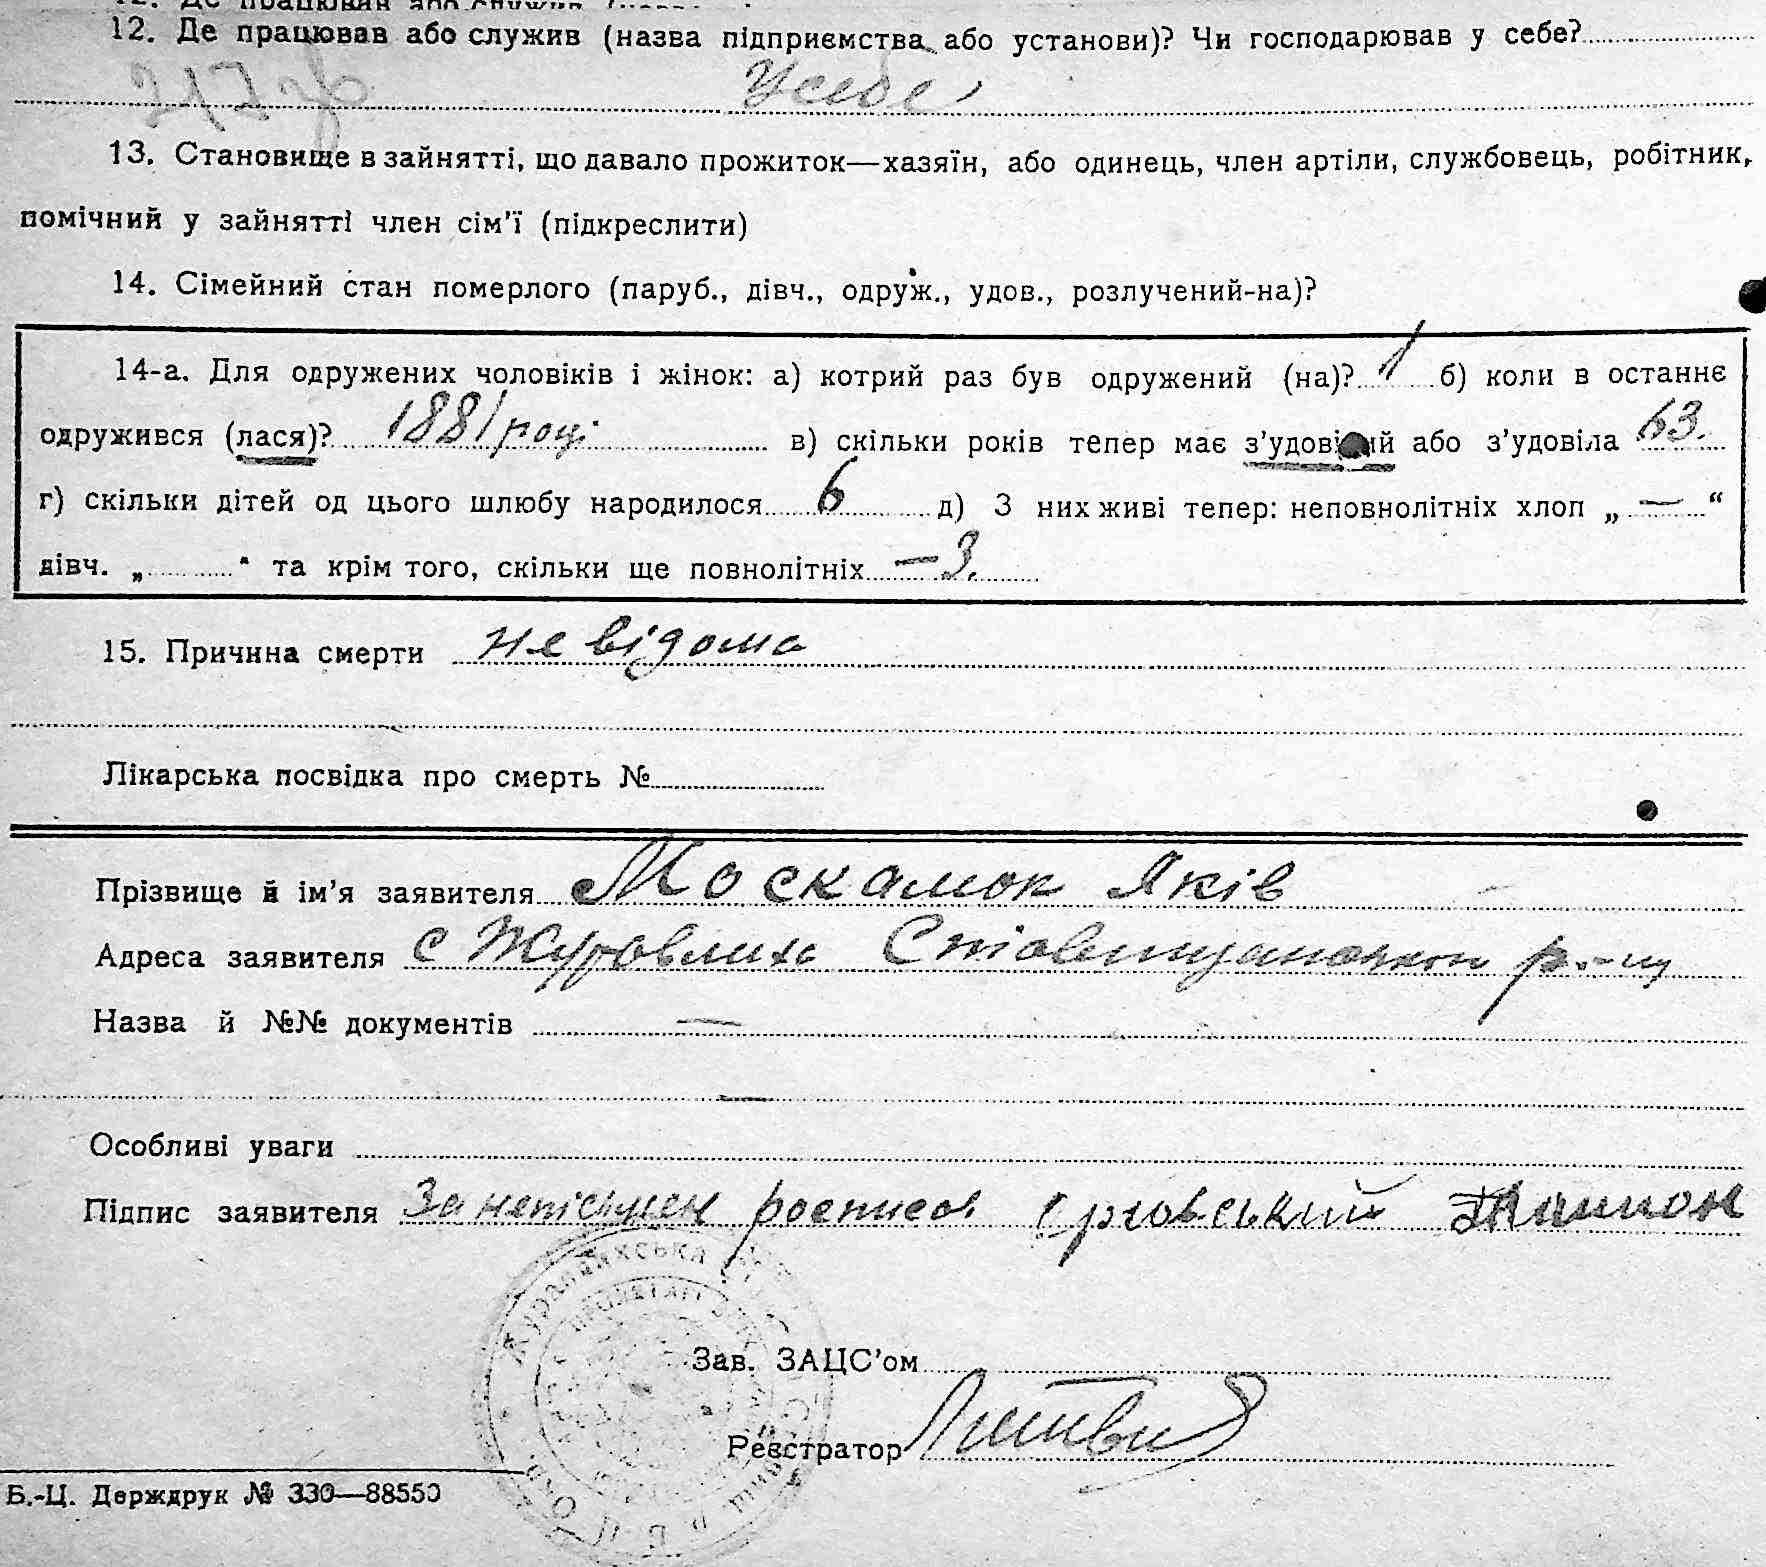 12. Де працював або служив (назва підприємства або установи)? Чи господарював у себе?
У себе
13. Становище в зайнятті, що давало прожиток—хазяїн, або одинець, член артіли, службовець, робітник,
помічний у зайнятті член сім'ї (підкреслити)
14. Сімейний стан померлого (паруб., дівч., одруж., удов., розлучений-на)?
14-а. Для одружених чоловіків і жінок: а) котрий раз був одружений (на)? 1 б) коли в останнє
одружився (лася)? 1881 році в) скільки років тепер має з'удовілий або з'удовіла 63.
г) скільки дітей од цього шлюбу народилося 6 д) З них живі тепер: неповнолітніх хлоп „ — “
дівч. „ “ та крім того, скільки ще повнолітніх — 3.
15. Причина смерти не відома
Лікарська посвідка про смерть №
Прізвище й ім'я заявителя Москамок Яків
Адреса заявителя с Журавлиха
Назва й №№ документів —
—
Особливі уваги
Підпис заявителя За
Зав. ЗАЦС'ом
Реєстратор Литвин
Б.-Ц. Держдрук № 330—88550